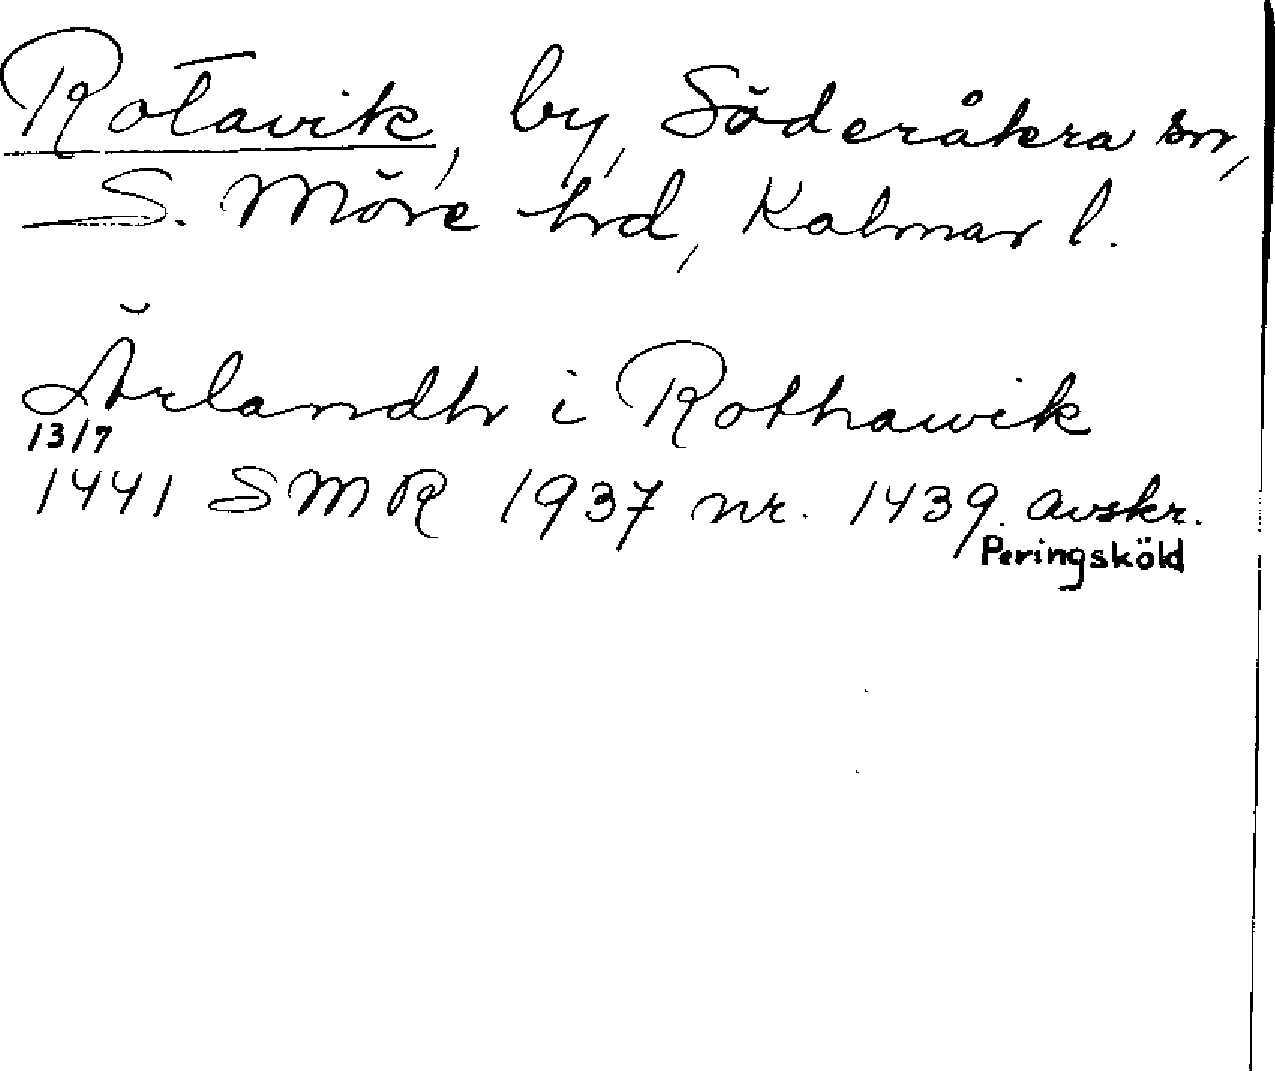 Rotavik, by, Söderåkra sn,
S. Möre hrd, Kalmar l.
Ärlandh i Rothawik
13/7
1441 SMR 1937 nr. 1439. avskr.
Peringsköld